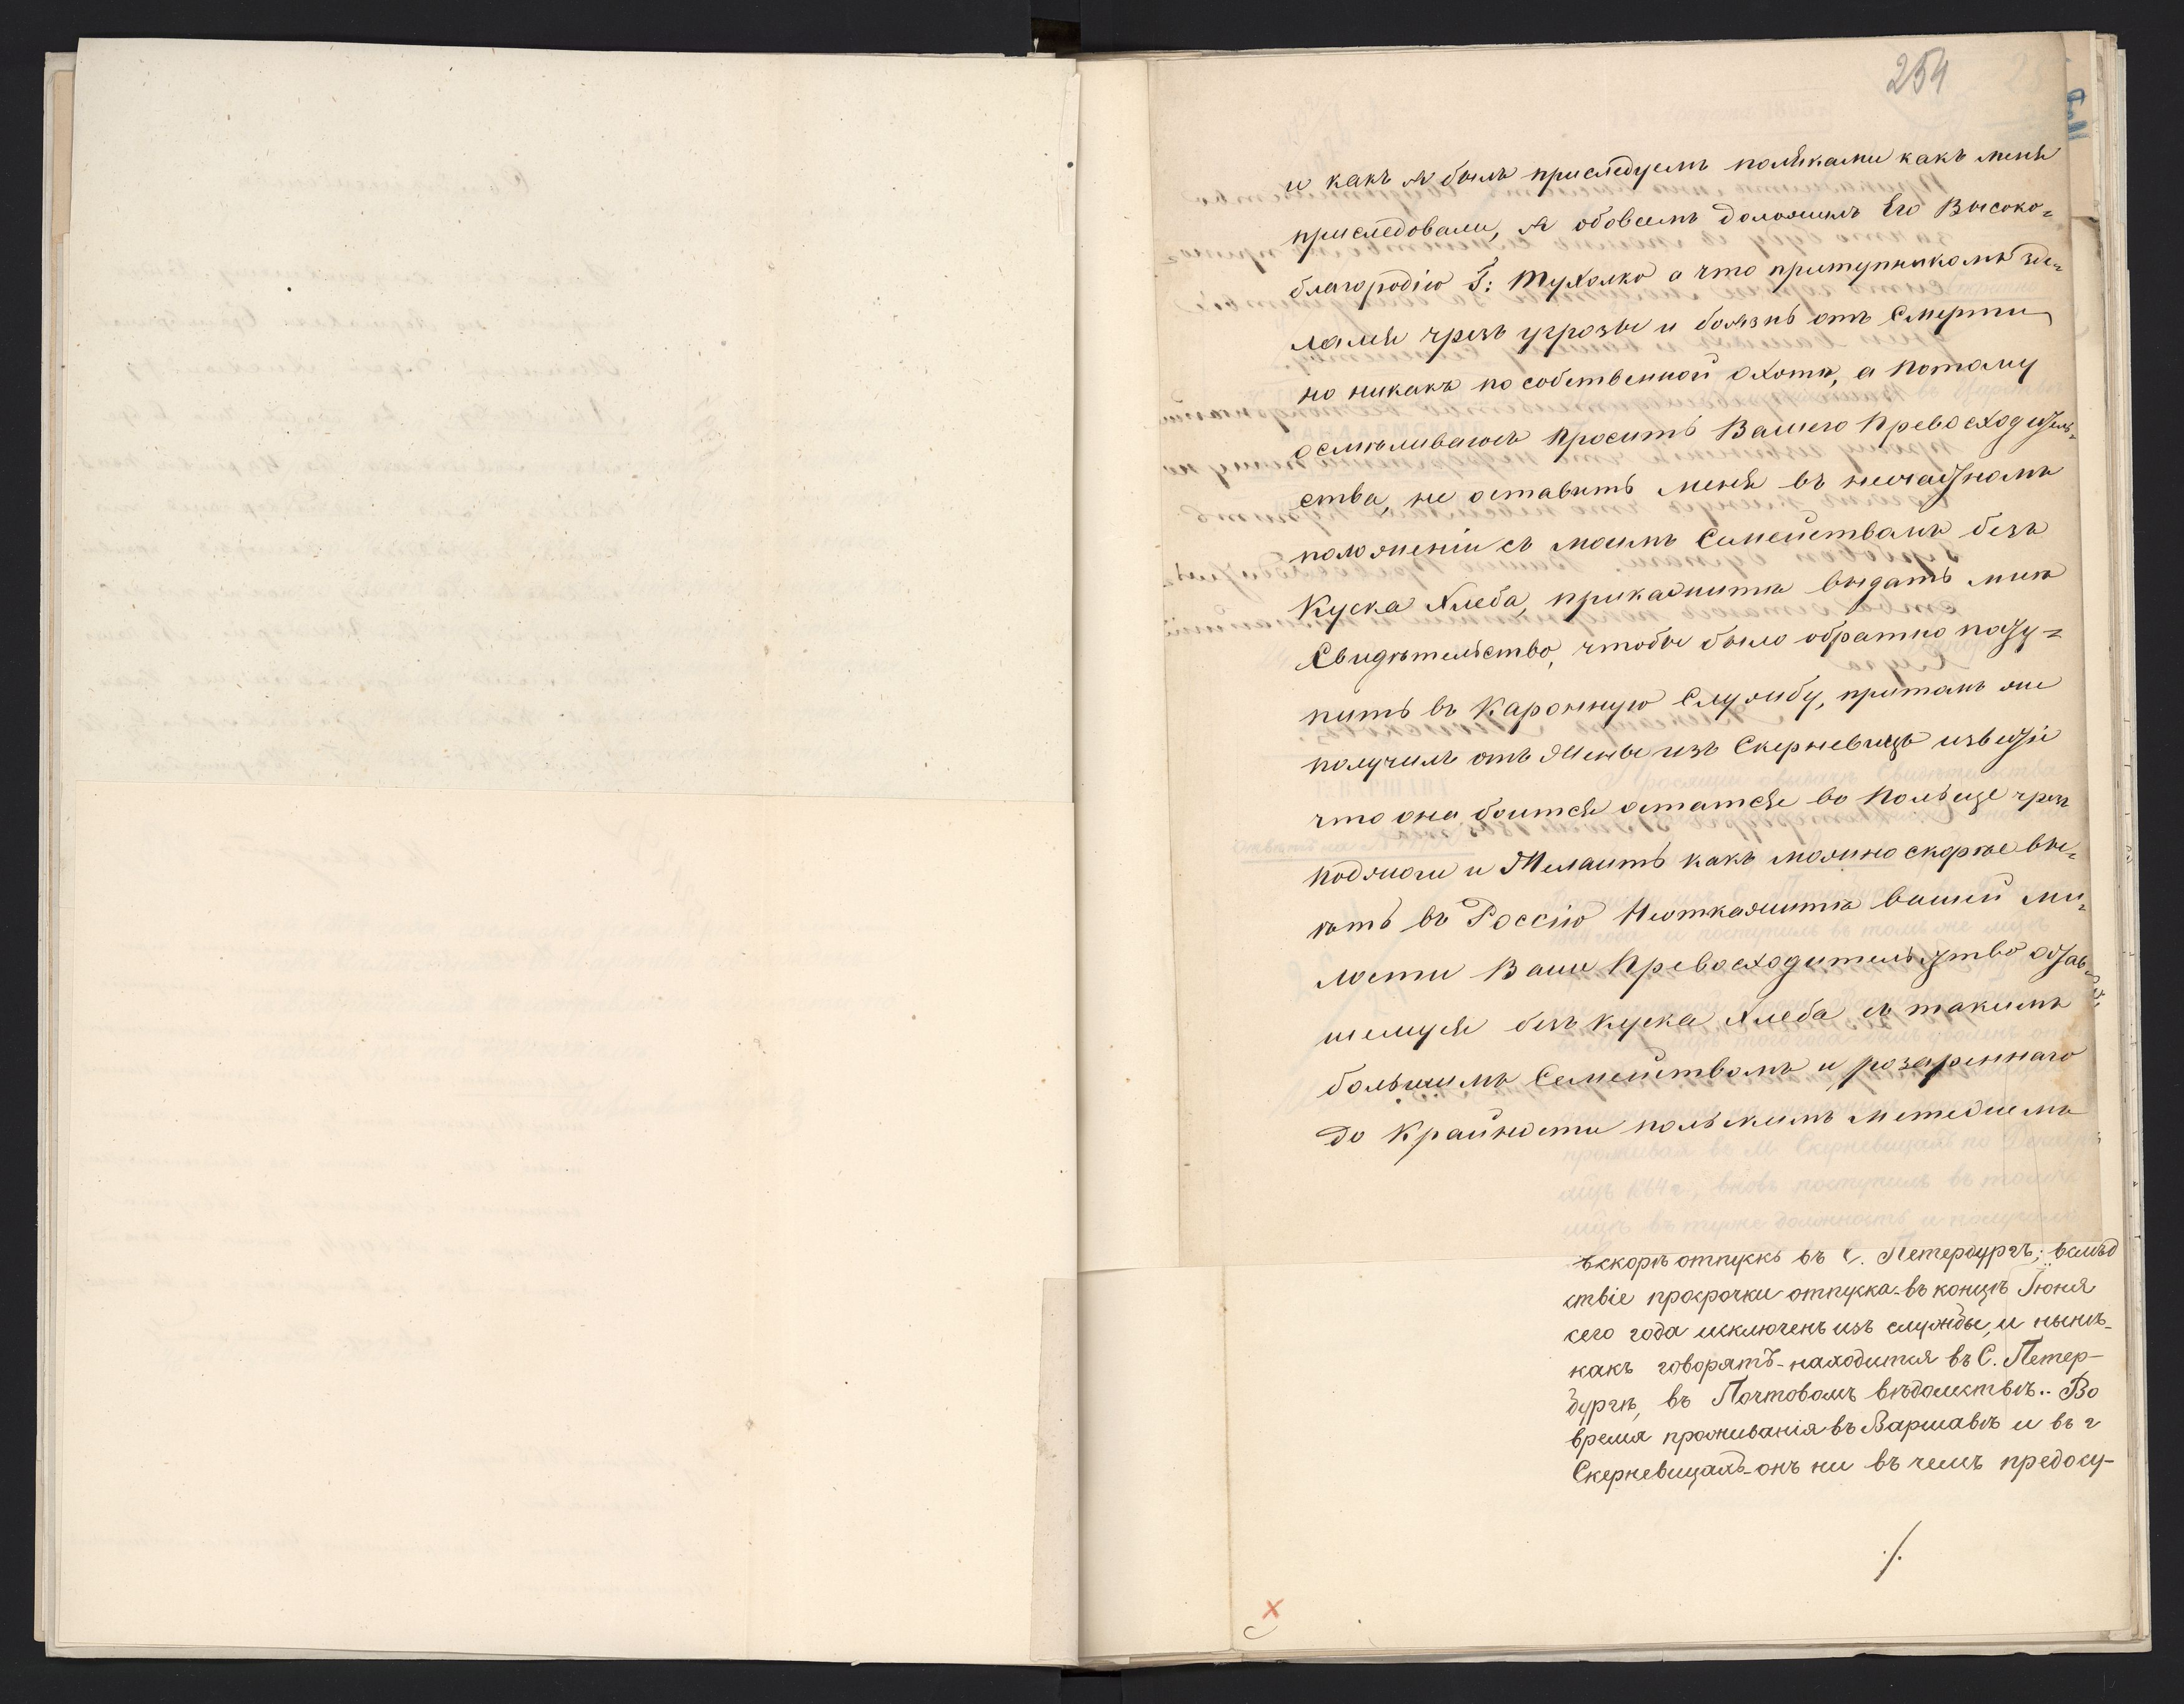 254
и какъ я былъ приследуемъ поляками какъ меня
приследовали, я обовсемъ доложилъ Его Высоко=
благородію Г: Тухолко а что приступникомъ зде=
лался чрезъ угрозы и боязнь отъ Смерти
но никакъ по собственной охоты, а потому
осмѣливаюсь просить Вашего Превосходитель=
ства, не оставить меня въ несчастномъ
положеніи съ моимъ Семействамъ безъ
Куска Хлеба, прикажите выдать мнѣ
Свидѣтельство, чтобы было обратно посту=
пить въ Каронную Службу, притомъ же
получилъ отъ Жены изъ Скерневицъ известіе
что она боится остатся во Польще чрезъ
поджоги и Желаитъ какъ можно скорѣе вы=
ѣть въ Россію Неоткажите вашей ми=
лости Ваше Превосходительство остав=
шемуся безъ куска Хлеба съ такимъ
большимъ Семействомъ и розареннаго
до Крайности польскимъ метежемъ
вскорѣ отпускъ въ С. Петербургъ; вслѣд
ствіе просрочки отпуска въ концѣ Іюня
сего года исключенъ изъ службы, и нынѣ-
какъ говорятъ-находится въ С. Петер-
бургѣ, въ Почтовомъ вѣдомствѣ.. Во
время проживанія въ Варшавѣ и въ г
Скерневицахъ-онъ ни въ чемъ предосу-
./.